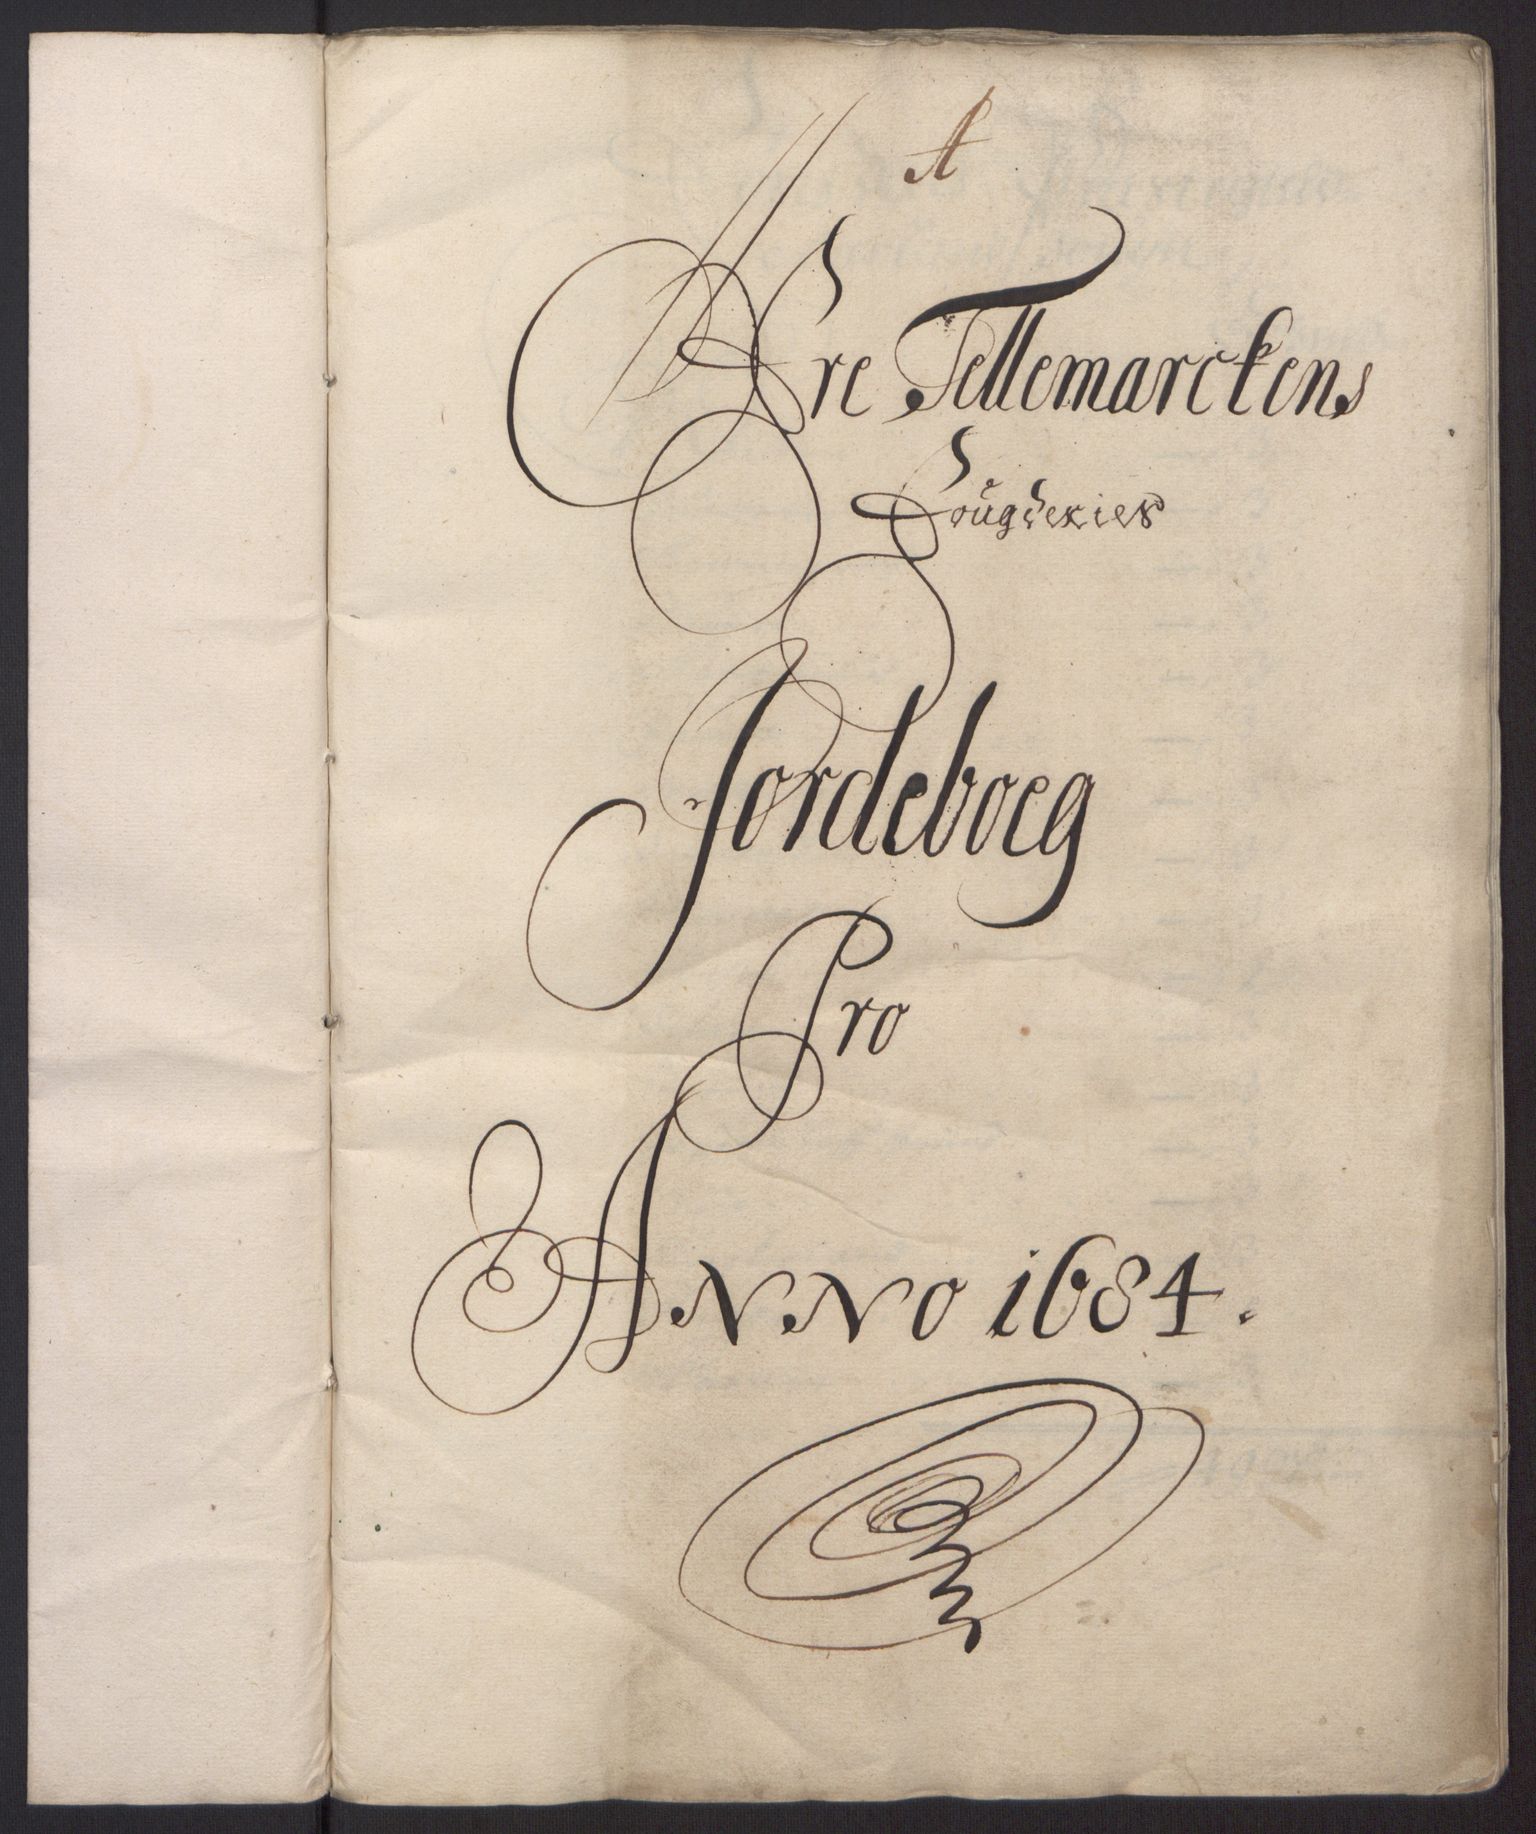 A
Øfre Tellemarckens
Fougderies
Jordeboeg
Pro
ANNO 1684.